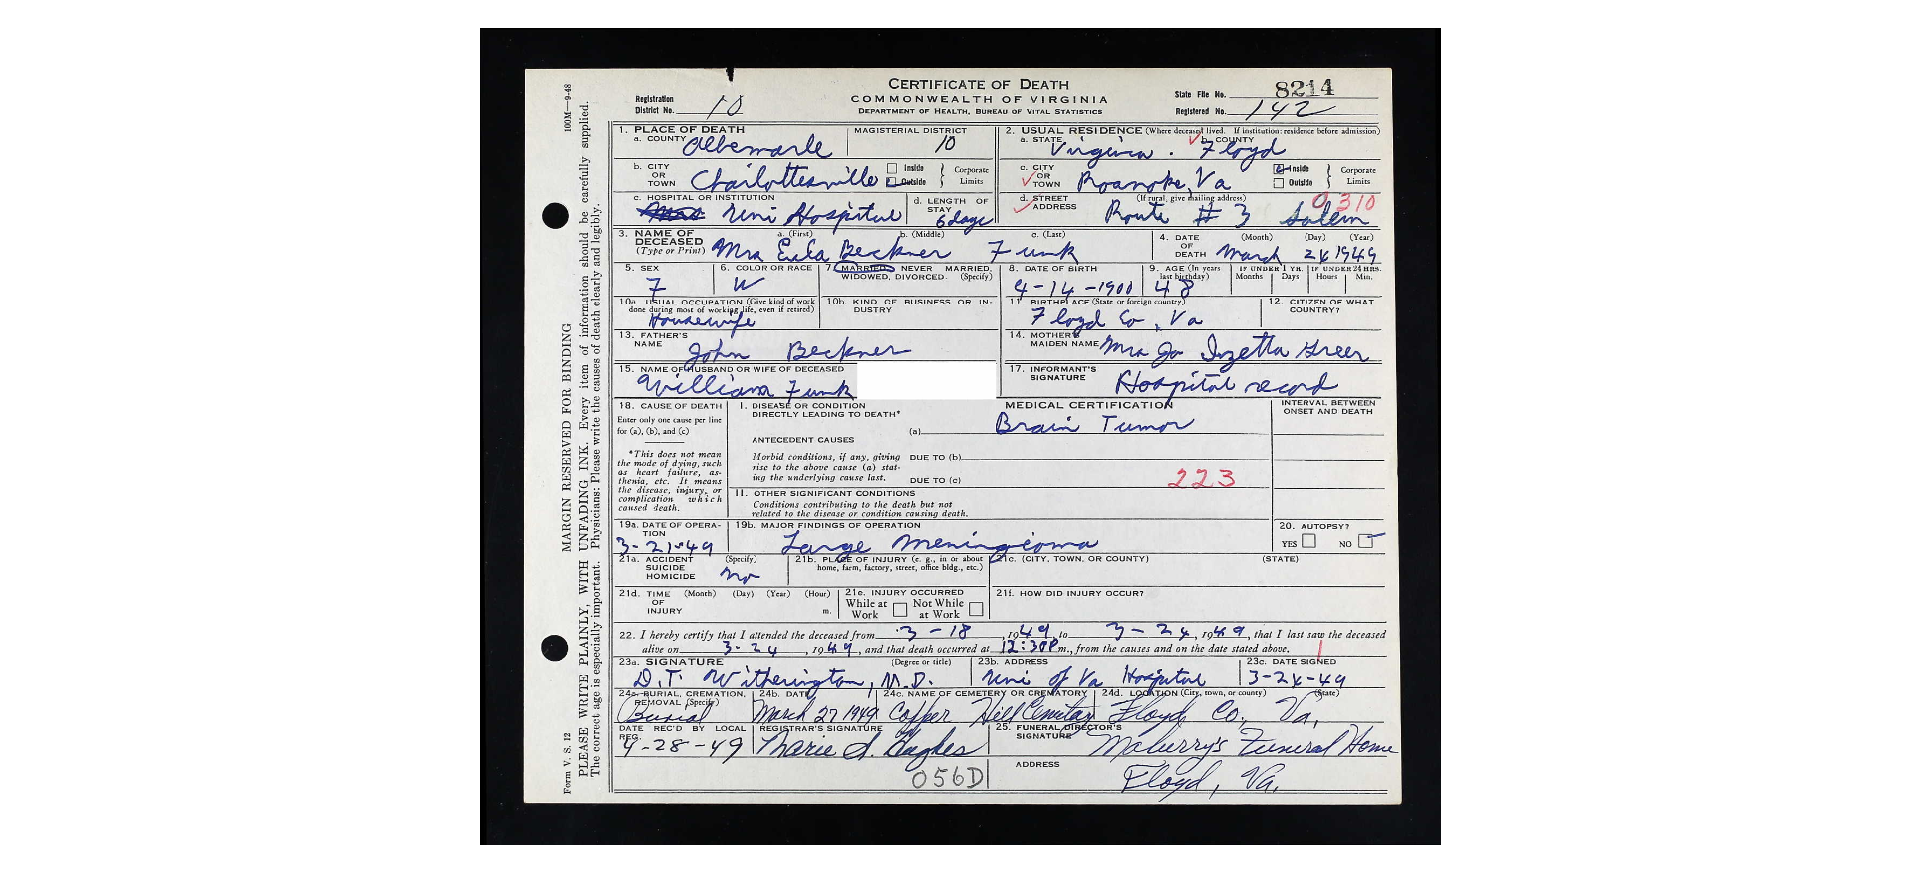 CERTIFICATE OF DEATH
COMMONWEALTH OF VIRGINIA
DEPARTMENT OF HEALTH, BUREAU OF VITAL STATISTICS
Registration District No. 10
State File No. 8214
Registered No. 142
100M—9-48
MARGIN RESERVED FOR BINDING
PLEASE WRITE PLAINLY, WITH UNFADING INK. Every item of information should be carefully supplied.
The correct age is especially important. Physicians: Please write the causes of death clearly and legibly.
Form V. S. 12
1. PLACE OF DEATH
a. COUNTY Albemarle
MAGISTERIAL DISTRICT 10
2. USUAL RESIDENCE (Where deceased lived. If institution: residence before admission)
a. STATE Virginia. b. COUNTY Floyd
b. CITY OR TOWN Charlottesville Inside Outside } Corporate Limits
c. CITY OR TOWN Roanoke, Va Inside Outside } Corporate Limits
c. HOSPITAL OR INSTITUTION Uni Hospital
d. LENGTH OF STAY 6 days
d. STREET ADDRESS (If rural, give mailing address) Route # 3 Salem
0310
3. NAME OF DECEASED (Type or Print) a. (First) b. (Middle) c. (Last)
Mrs Eula Beckner Funk
4. DATE OF DEATH (Month) (Day) (Year) March 24 1949
5. SEX F
6. COLOR OR RACE W
7. MARRIED, NEVER MARRIED, WIDOWED, DIVORCED. (Specify)
8. DATE OF BIRTH 4-14-1900
9. AGE (In years last birthday) 48
IF UNDER 1 YR. Months Days
IF UNDER 24 HRS. Hours Min.
10a. USUAL OCCUPATION (Give kind of work done during most of working life, even if retired) Housewife
10b. KIND OF BUSINESS OR INDUSTRY
11. BIRTHPLACE (State or foreign country) Floyd Co, Va
12. CITIZEN OF WHAT COUNTRY?
13. FATHER'S NAME John Beckner
14. MOTHER'S MAIDEN NAME Mrs Jo Inzetta Greer
15. NAME OF HUSBAND OR WIFE OF DECEASED William Funk
17. INFORMANT'S SIGNATURE Hospital record
18. CAUSE OF DEATH
Enter only one cause per line for (a), (b), and (c)
*This does not mean the mode of dying, such as heart failure, asthenia, etc. It means the disease, injury, or complication which caused death.
MEDICAL CERTIFICATION
INTERVAL BETWEEN ONSET AND DEATH
I. DISEASE OR CONDITION DIRECTLY LEADING TO DEATH*
(a) Brain Tumor
ANTECEDENT CAUSES
Morbid conditions, if any, giving rise to the above cause (a) stating the underlying cause last.
DUE TO (b)
DUE TO (c)
223
II. OTHER SIGNIFICANT CONDITIONS
Conditions contributing to the death but not related to the disease or condition causing death.
19a. DATE OF OPERATION 3-21-49
19b. MAJOR FINDINGS OF OPERATION Large Meningioma
20. AUTOPSY? YES NO
21a. ACCIDENT SUICIDE HOMICIDE (Specify) No
21b. PLACE OF INJURY (e. g., in or about home, farm, factory, street, office bldg., etc.)
21c. (CITY, TOWN, OR COUNTY) (STATE)
21d. TIME OF INJURY (Month) (Day) (Year) (Hour) m.
21e. INJURY OCCURRED While at Work Not While at Work
21f. HOW DID INJURY OCCUR?
22. I hereby certify that I attended the deceased from 3-18, 1949, to 3-24, 1949, that I last saw the deceased
alive on 3-24, 1949, and that death occurred at 12:30P m., from the causes and on the date stated above.
23a. SIGNATURE (Degree or title) D.T. Witherington, M.D.
23b. ADDRESS Uni of Va Hospital
23c. DATE SIGNED 3-24-49
24a. BURIAL, CREMATION, REMOVAL (Specify) Burial
24b. DATE March 27 1949
24c. NAME OF CEMETERY OR CREMATORY Copper Hill Cemetary
24d. LOCATION (City, town, or county) (State) Floyd Co., Va.
DATE REC'D BY LOCAL REG. 4-28-49
REGISTRAR'S SIGNATURE Marie S. Hughes
25. FUNERAL DIRECTOR'S SIGNATURE Funeral Home
ADDRESS Floyd, Va.
056D